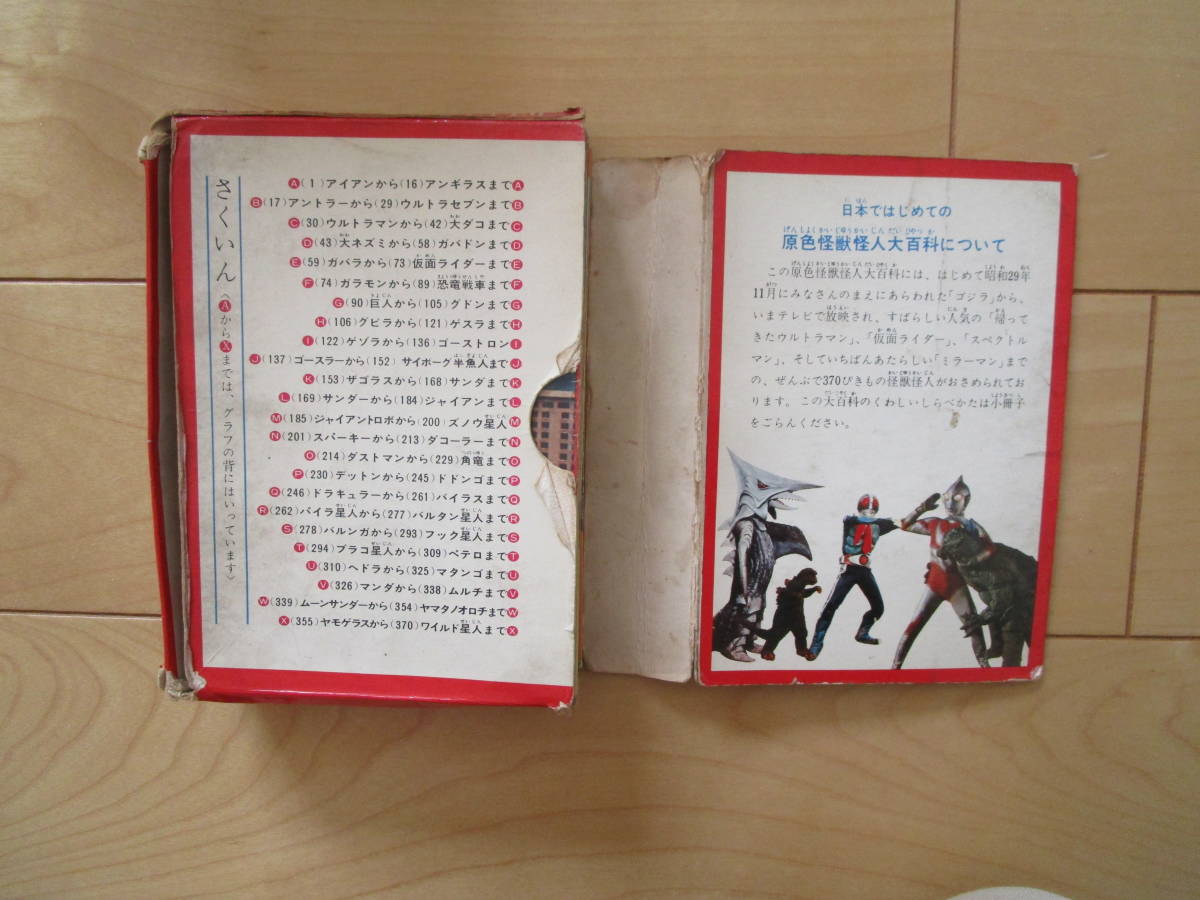 さくいん〈ⒶからⓍまでは、グラフの背にはいっています〉
Ⓐ(1)アイアンから(16)アンギラスまでⒶ
Ⓑ(17)アントラーから(29)ウルトラセブンまでⒷ
Ⓒ(30)ウルトラマンから(42)大ダコまでⒸ
Ⓓ(43)大ネズミから(58)ガバドンまでⒹ
Ⓔ(59)ガバラから(73)仮面ライダーまでⒺ
Ⓕ(74)ガラモンから(89)恐竜戦車までⒻ
Ⓖ(90)巨人から(105)グドンまでⒼ
Ⓗ(106)グビラから(121)ゲスラまでⒽ
Ⓘ(122)ゲゾラから(136)ゴーストロンⒾ
Ⓙ(137)ゴースラーから(152)サイボーグ半魚人までⒿ
Ⓚ(153)ザゴラスから(168)サンダまでⓀ
Ⓛ(169)サンダーから(184)ジャイアンまでⓁ
Ⓜ(185)ジャイアントロボから(200)ズノウ星人Ⓜ
Ⓝ(201)スパーキーから(213)ダコーラーまでⓃ
Ⓞ(214)ダストマンから(229)角竜までⓄ
Ⓟ(230)デットンから(245)ドドンゴまでⓅ
Ⓠ(246)ドラキュラーから(261)バイラスまでⓆ
Ⓡ(262)バイラ星人から(277)バルタン星人までⓇ
Ⓢ(278)バルンガから(293)フック星人までⓈ
Ⓣ(294)プラコ星人から(309)ペテロまでⓉ
Ⓤ(310)ヘドラから(325)マタンゴまでⓊ
Ⓥ(326)マンダから(338)ムルチまでⓋ
Ⓦ(339)ムーンサンダーから(354)ヤマタノオロチまでⓌ
Ⓧ(355)ヤモゲラスから(370)ワイルド星人までⓍ
日本ではじめての
原色怪獣怪人大百科について
この原色怪獣怪人大百科には、はじめて昭和29年
11月にみなさんのまえにあらわれた「ゴジラ」から、
いまテレビで放映され、すばらしい人気の「帰って
きたウルトラマン」、「仮面ライダー」、「スペクトル
マン」、そしていちばんあたらしい「ミラーマン」まで
の、ぜんぶで370ぴきもの怪獣怪人がおさめられてお
ります。この大百科のくわしいしらべかたは小冊子
をごらんください。